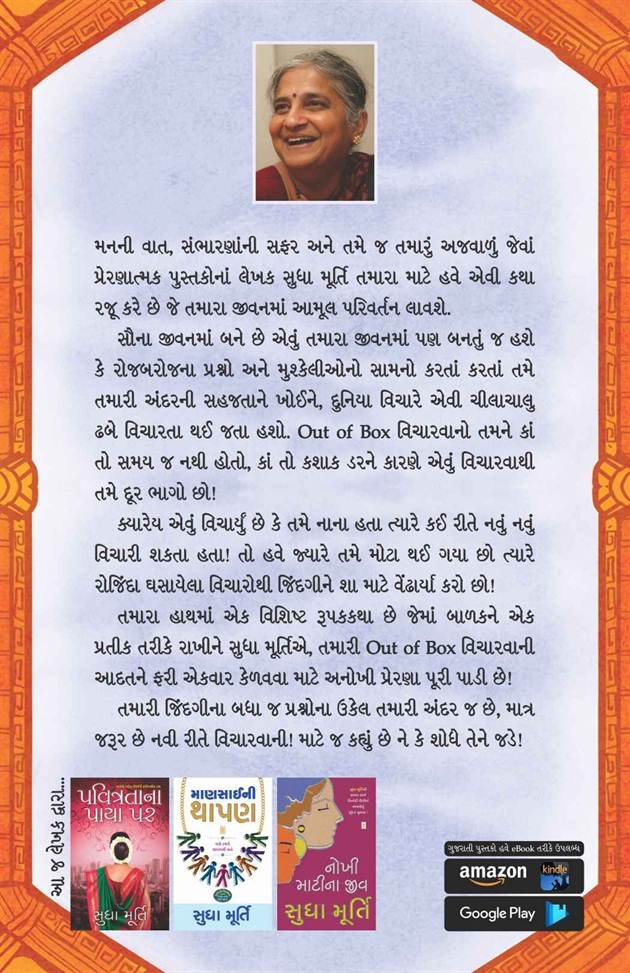 મનની વાત, સંભારણાંની સફર અને તમે જ તમારું અજવાળું જેવાં
પ્રેરણાત્મક પુસ્તકોનાં લેખક સુધા મૂર્તિ તમારા માટે હવે એવી કથા
રજૂ કરે છે જે તમારા જીવનમાં આમૂલ પરિવર્તન લાવશે.
સૌના જીવનમાં બને છે એવું તમારા જીવનમાં પણ બનતું જ હશે
કે રોજબરોજના પ્રશ્નો અને મુશ્કેલીઓનો સામનો કરતાં કરતાં તમે
તમારી અંદરની સહજતાને ખોઈને, દુનિયા વિચારે એવી ચીલાચાલુ
ઢબે વિચારતા થઈ જતા હશો. Out of Box વિચારવાનો તમને કાં
તો સમય જ નથી હોતો, કાં તો કશાક ડરને કારણે એવું વિચારવાથી
તમે દૂર ભાગો છો!
ક્યારેય એવું વિચાર્યું છે કે તમે નાના હતા ત્યારે કઈ રીતે નવું નવું
વિચારી શકતા હતા! તો હવે જ્યારે તમે મોટા થઈ ગયા છો ત્યારે
રોજિંદા ઘસાયેલા વિચારોથી જિંદગીને શા માટે વેંઢાર્યા કરો છો!
તમારા હાથમાં એક વિશિષ્ટ રૂપકકથા છે જેમાં બાળકને એક
પ્રતીક તરીકે રાખીને સુધા મૂર્તિએ, તમારી Out of Box વિચારવાની
આદતને ફરી એકવાર કેળવવા માટે અનોખી પ્રેરણા પૂરી પાડી છે!
તમારી જિંદગીના બધા જ પ્રશ્નોના ઉકેલ તમારી અંદર જ છે, માત્ર
જરૂર છે નવી રીતે વિચારવાની! માટે જ કહ્યું છે ને કે શોધે તેને જડે!
આ જ લેખક દ્વારા...
પવિત્રતાના
પાયા પર
સુધા મૂર્તિ
માણસાઈની
થાપણ
સુધા મૂર્તિ
નોખી
માટીના જીવ
સુધા મૂર્તિ
ગુજરાતી પુસ્તકો હવે eBook તરીકે ઉપલબ્ધ
amazon kindle
Google Play